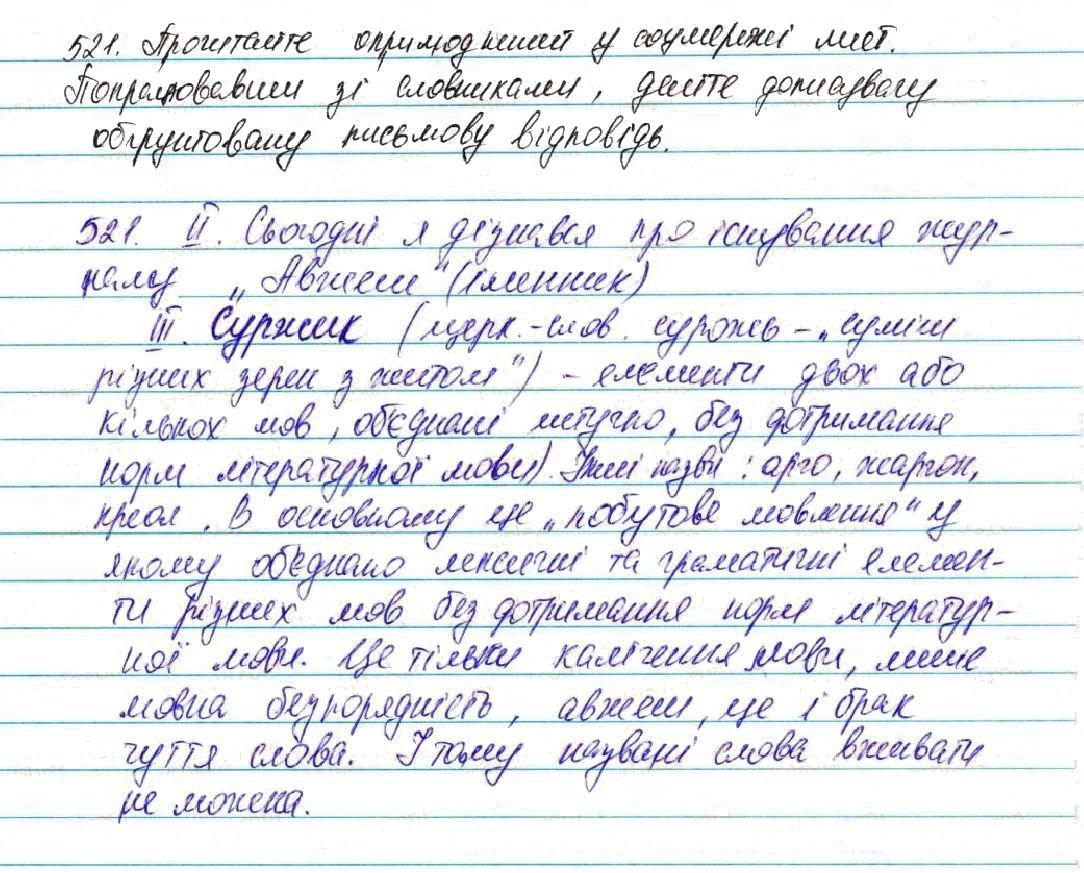 521. Прочитайте оприлюднений у соцмережі лист.
Попрацювавши зі словниками, дайте доказову
обґрунтовану письмову відповідь.
521. II. Сьогодні я дізнався про існування жур-
налу „Авжеш" (іменник)
III. Суржик (церк.-слов. сурожь – „суміш
різних зерен з житом") – елементи двох або
кількох мов, об'єднані штучно, без дотримання
норм літературної мови). Інші назви: арго, жаргон,
креол. В основному це „побутове мовлення" у
якому об'єднано лексичні та граматичні елемен-
ти різних мов без дотримання норм літератур-
ної мови. Це тільки калічення мови, лише
мовна безпорядність, авжеш, це і брак
чуття слова. І тому названі слова вживати
не можна.